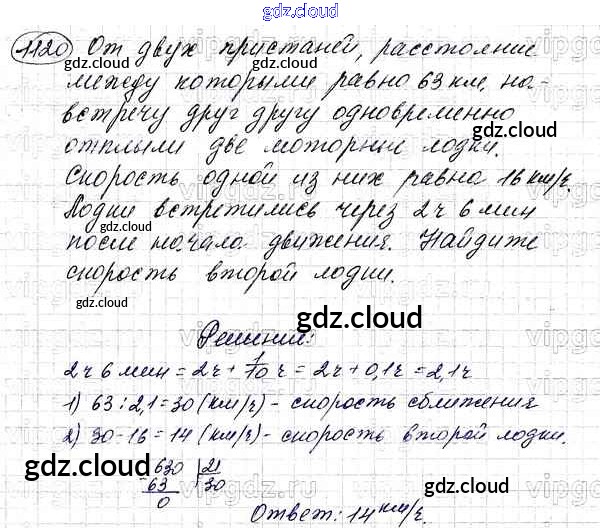 gdz.cloud
1120 От двух пристаней, расстояние
между которыми равно 63 км, на-
встречу друг другу одновременно
отплыли две моторные лодки.
Скорость одной из них равна 16 км/ч.
Лодки встретились через 2 ч 6 мин
после начала движения. Найдите
скорость второй лодки.
Решение:
2 ч 6 мин = 2ч + 1/10 ч = 2ч + 0,1ч = 2,1ч
1) 63 : 2,1 = 30 (км/ч) - скорость сближения
2) 30 - 16 = 14 (км/ч) - скорость второй лодки.
630 21
63 30
0
Ответ: 14 км/ч.
gdz.cloud
gdz.cloud
gdz.cloud
gdz.cloud
gdz.cloud
gdz.cloud
gdz.cloud
gdz.cloud
gdz.cloud
gdz.cloud